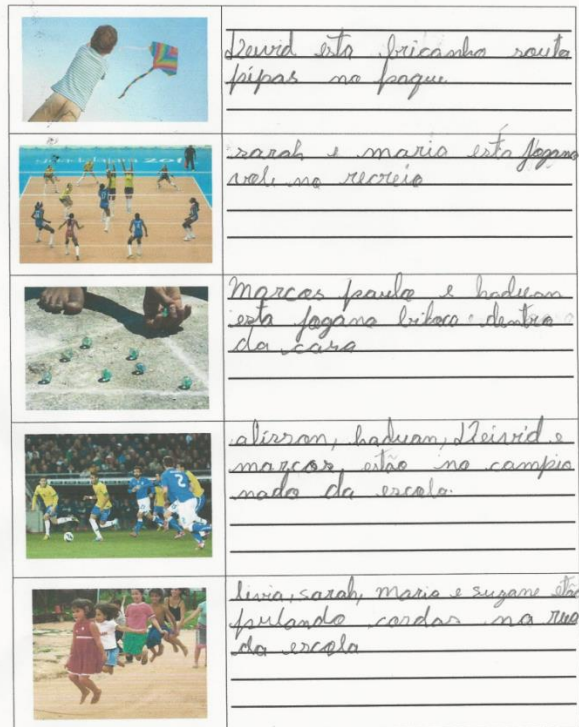 Deivid esta bricanho souta
pipas no paque
sarah e maria está jogano
vole no recreio
marcos paulo e haduan
esta jogano biloco dentro
da casa
alisson, haduan, Deivid e
marcos, estão no campio
nado da escola.
livia, sarah, maria e suzane etão
pulando cordas na rua
da escola